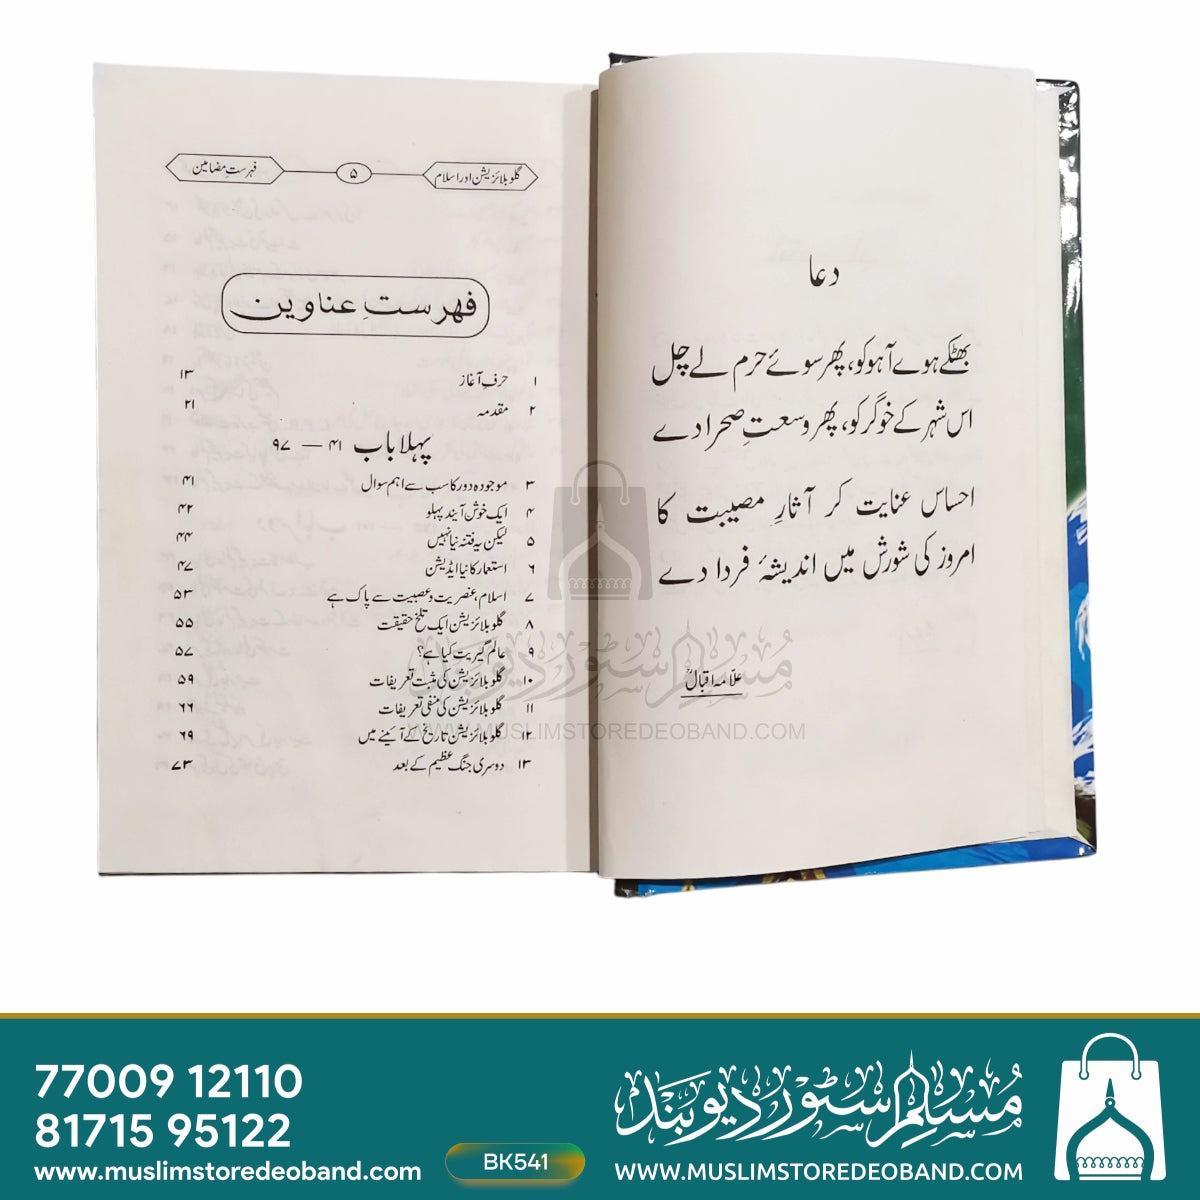 دعا
بھٹکے ہوے آہو کو، پھر سوئے حرم لے چل
اس شہر کے خوگر کو، پھر وسعتِ صحرا دے
احساس عنایت کر آثارِ مصیبت کا
امروز کی شورش میں اندیشۂ فردا دے
علّامہ اقبالؒ
گلوبلائزیشن اور اسلام ۵ فہرست مضامین
فہرستِ عناوین
۱ حرفِ آغاز ۱۳
۲ مقدمہ ۲۱
پہلا باب ۴۱ — ۹۷
۳ موجودہ دور کا سب سے اہم سوال ۴۱
۴ ایک خوش آیند پہلو ۴۲
۵ لیکن یہ فتنہ نیا نہیں ۴۴
۶ استعمار کا نیا ایڈیشن ۴۷
۷ اسلام، عنصریت و عصبیت سے پاک ہے ۵۳
۸ گلوبلائزیشن ایک تلخ حقیقت ۵۵
۹ عالم گیریت کیا ہے؟ ۵۷
۱۰ گلوبلائزیشن کی مثبت تعریفات ۵۹
۱۱ گلوبلائزیشن کی منفی تعریفات ۶۶
۱۲ گلوبلائزیشن تاریخ کے آئینے میں ۶۹
۱۳ دوسری جنگ عظیم کے بعد ۷۳
مسلم سٹور دیوبند
WWW.MUSLIMSTOREDEOBAND.COM
77009 12110
81715 95122
www.muslimstoredeoband.com
BK541
مسلم سٹور دیوبند
WWW.MUSLIMSTOREDEOBAND.COM